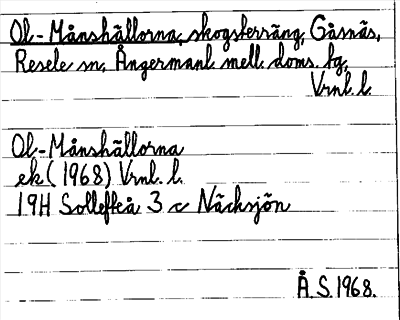 Ol-Månshällorna, skogsterräng, Gåsnäs,
Resele sn, Ångermanl. mell. doms. fg,
Vrnl. l.
Ol-Månshällorna
ek (1968) Vrnl. l.
19H Sollefteå 3 c Näcksjön
Å.S. 1968.